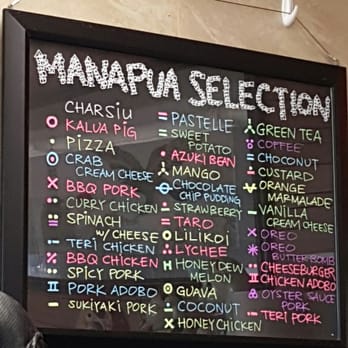 MANAPUA SELECTION
CHARSIU
KALUA PIG
PIZZA
CRAB
CREAM CHEESE
BBQ PORK
CURRY CHICKEN
SPINACH
W/ CHEESE
TERI CHICKEN
BBQ CHICKEN
SPICY PORK
PORK ADOBO
SUKIYAKI PORK
PASTELLE
SWEET
POTATO
AZUKI BEAN
MANGO
CHOCOLATE
CHIP PUDDING
STRAWBERRY
TARO
LILIKOI
LYCHEE
HONEYDEW
MELON
GUAVA
COCONUT
HONEY CHICKEN
GREEN TEA
COFFEE
CHOCONUT
CUSTARD
ORANGE
MARMALADE
VANILLA
CREAM CHEESE
OREO
OREO
BUTTERBOMB
CHEESEBURGER
CHICKEN ADOBO
OYSTER SAUCE
PORK
TERI PORK